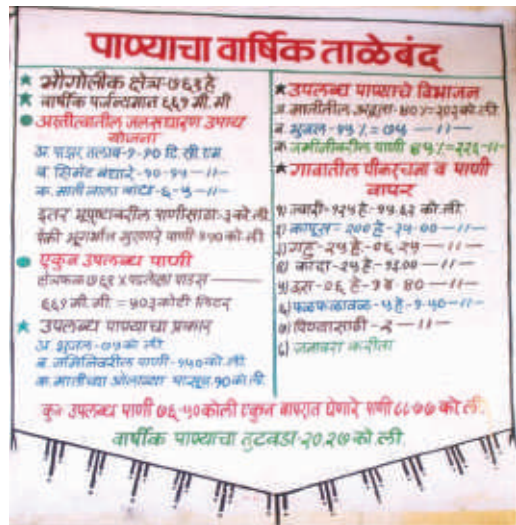 पाण्याचा वार्षिक ताळेबंद
* भौगोलीक क्षेत्र-७६३ हे
* वार्षीक पर्जन्यमान ६६१ मी.मी
● अस्तीत्वातील जलसंधारण उपाय योजना
अ. पाझर तलाव-१-१० टि.सी.एम
ब. सिमेंट बंधारे-१०-१५ —॥—
क. माती नाला बांध-६-५ —॥—
इतर भूपृष्ठावरील पाणीसाठा-३ को.ली
पैकी भूगर्भात मुरणारे पाणी १५० को.ली
● एकुन उपलब्ध पाणी
क्षेत्रफळ ७६१ X पडलेला पाउस
६६१ मी.मी. = ५०३ कोटी लिटर
* उपलब्ध पाण्याचा प्रकार
अ. भूजल-७५ को.ली
ब. जमिनिवरील पाणी-१५० को.ली.
क. मातीच्या ओलाव्या पासून १० को.ली.
* उपलब्ध पाण्याचे विभाजन
अ. मातीतील ओलावा-४०%=२०२ को.ली.
ब. भूजल-१५%=७५ —॥—
क. जमीनीवरील पाणी ४५%=२२६ —॥—
* गावातील पीकरचना व पाणी वापर
१) ज्वारी-१२५ हे-१५.६२ को.ली.
२) कापूस-२०० हे-२५.०० —॥—
३) गहु-२५ हे-०६.२५ —॥—
४) कांदा-२५ हे-१३.०० —॥—
५) उस-०६ हे-१४.४० —॥—
६) फळफळावळ-५ हे-१.५० —॥—
७) पिण्यासाठी-२ —॥—
८) जनावरा करीता
कुन उपलब्ध पाणी ७६.५० कोली एकुन वापरात येणारे पाणी ८८.७७ को.ली.
वार्षीक पाण्याचा तुटवडा-२०.२७ को.ली.